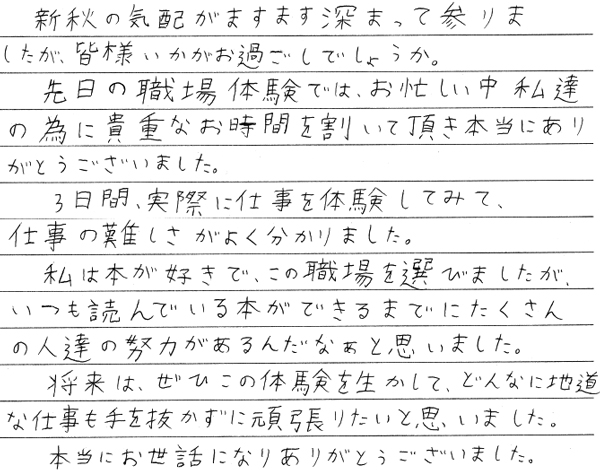 新秋の気配がますます深まって参りま
したが、皆様いかがお過ごしでしょうか。
先日の職場体験では、お忙しい中私達
の為に貴重なお時間を割いて頂き本当にあり
がとうございました。
3日間、実際に仕事を体験してみて、
仕事の難しさがよく分かりました。
私は本が好きで、この職場を選びましたが、
いつも読んでいる本ができるまでにたくさん
の人達の努力があるんだなぁと思いました。
将来は、ぜひこの体験を生かして、どんなに地道
な仕事も手を抜かずに頑張りたいと思いました。
本当にお世話になりありがとうございました。